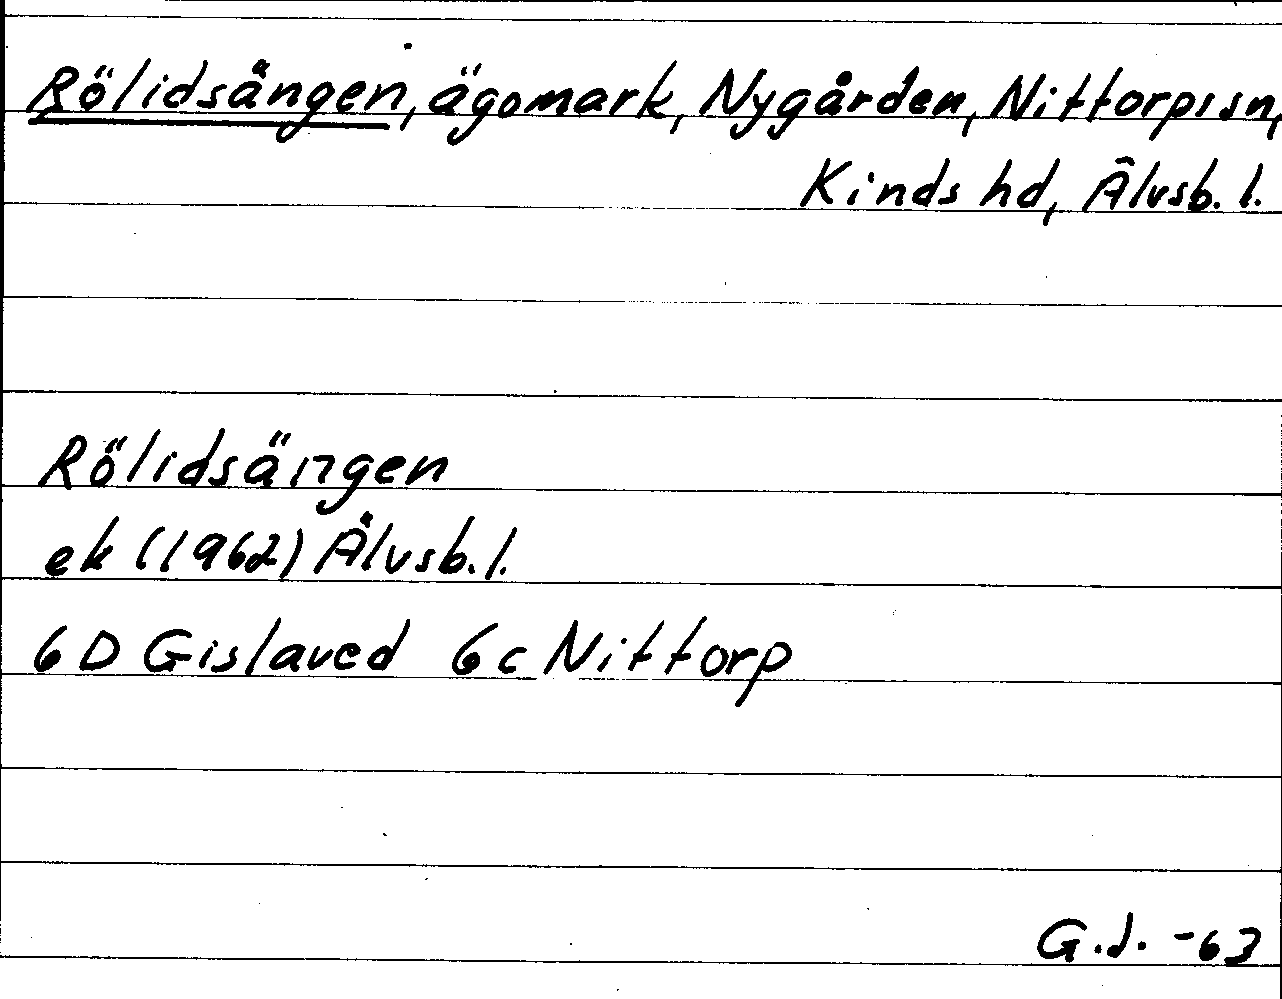 Rölidsängen, ägomark, Nygården, Nittorps sn,
Kinds hd, Älvsb. l.
Rölidsängen
ek (1962) Älvsb. l.
6D Gislaved 6c Nittorp
G.J. -63